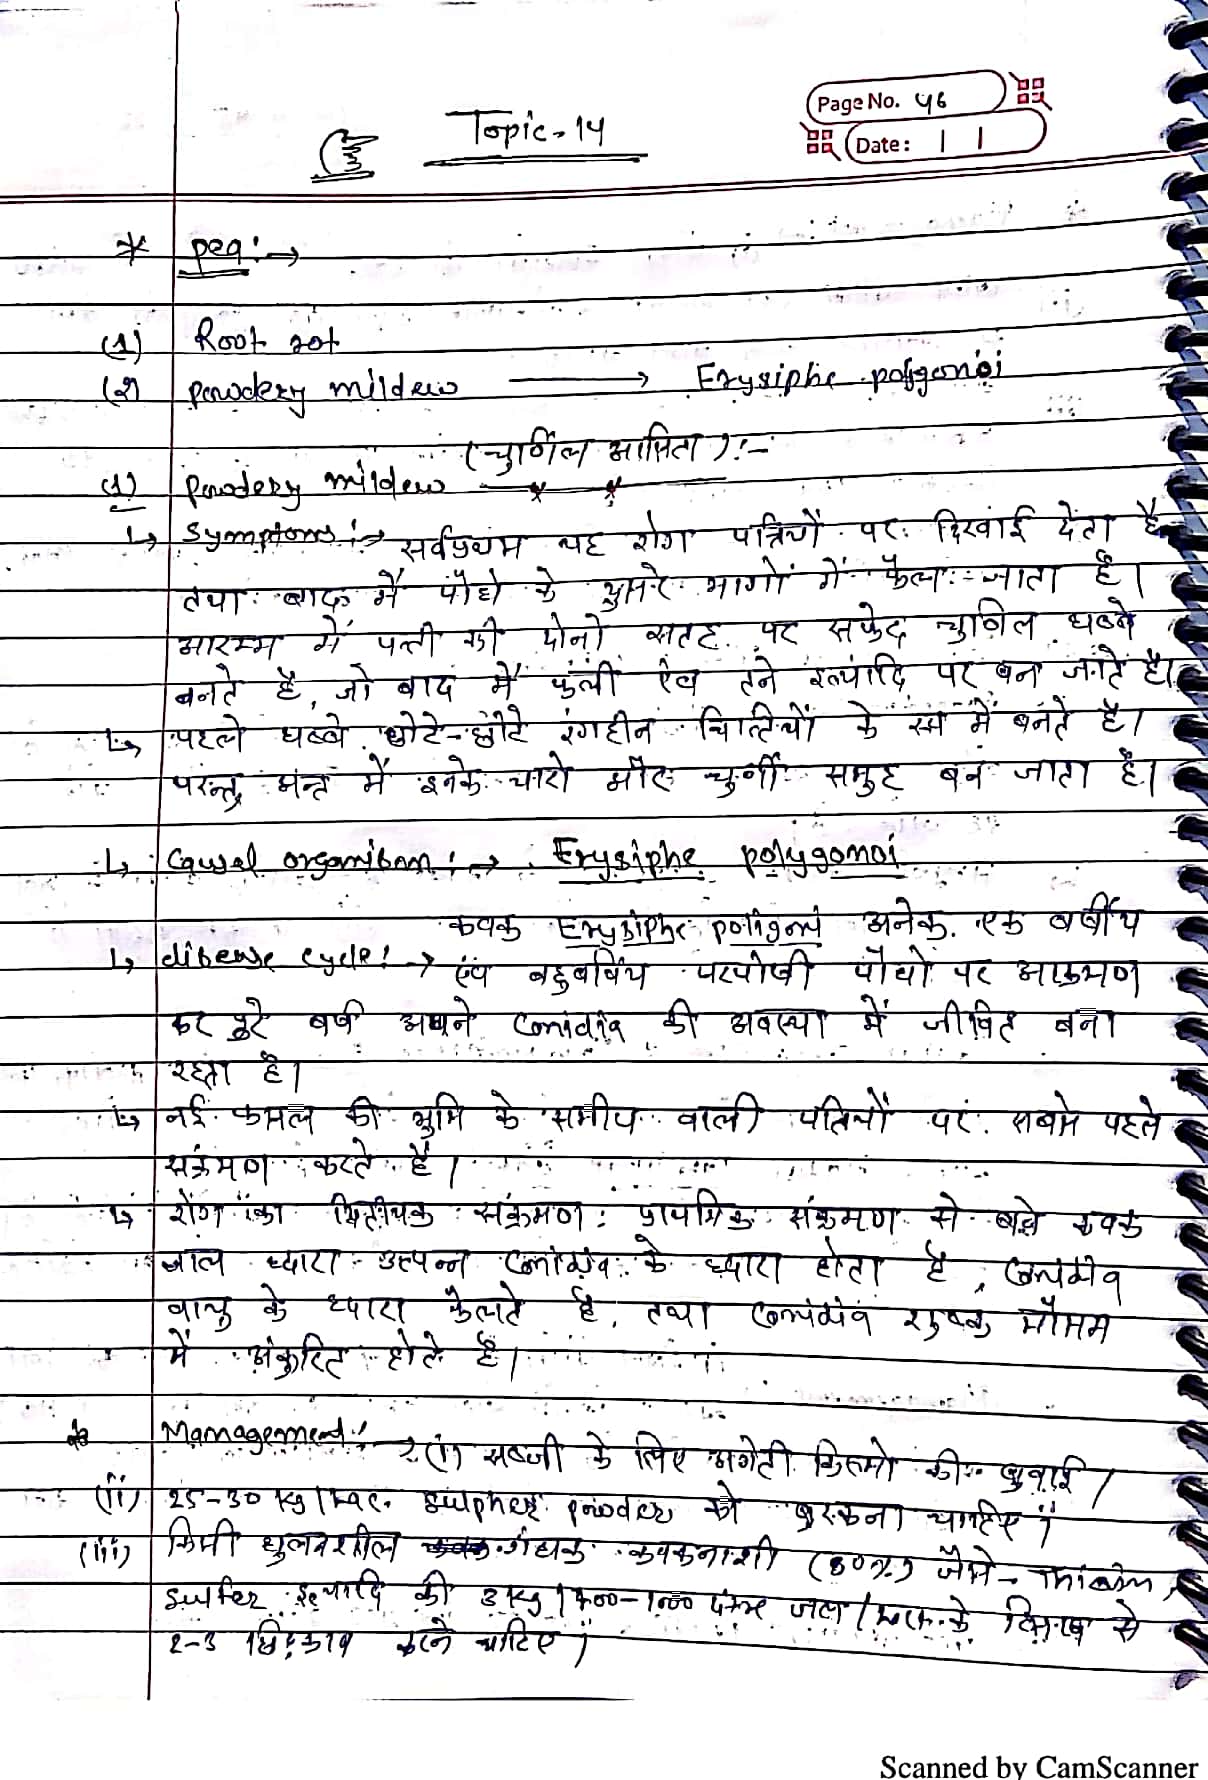 Page No. 46
Topic-14
Date: | |
* pea :→
(1) Root rot
(2) powdery mildew → Erysiphe polygonoi
(चुर्णिल आसिता) :-
(1) powdery mildew
↳ Symptoms :→ सर्वप्रथम यह रोग पत्तियों पर दिखाई देता है
तथा बाद में पौधे के दुसरे भागों में फैल जाता है।
आरम्भ में पत्ती की दोनो सतह पर सफेद चुर्णिल धब्बे
बनते है, जो बाद में फली एंव तने इत्यादि पर बन जाते है।
↳ पहले धब्बे छोटे-छोटे रंगहीन चित्तियों के रूप में बनते है।
परन्तु अन्त में इनके चारो और चुर्णी समुह बन जाता है।
↳ Causal organism :→ Erysiphe polygonoi
कवक Erysiphe poligoni अनेक एक वर्षीय
↳ disease cycle :→ एंव बहुवर्षिय परपोषी पौधों पर आक्रमण
कर पुरे वर्ष अपने Conidia की अवस्था में जीवित बना
रहता है।
↳ नई फसल की भुमि के समीप वाली पतियों पर सबसे पहले
संक्रमण करते है।
↳ रोग का द्वितीयक संक्रमण प्राथमिक संक्रमण से बने कवक
जाल ध्दारा उत्पन्न Conidia के ध्दारा होता है, Conidia
वायु के ध्दारा फैलते है, तथा Conidia शुष्क मौसम
में अंकुरित होते है।
* Management :→ (i) सब्जी के लिए अगेती किस्मो की बुवाई।
(ii) 25-30 kg/hac. Sulpher powder को बुरकना चाहिए।
(iii) किसी घुलनशील गंधक कवकनाशी (80%) जैसे-
Sulfer इत्यादि की 3kg/700-1000 जल/ के हिसाब से
2-3 छिड़काव करने चाहिए।
Scanned by CamScanner